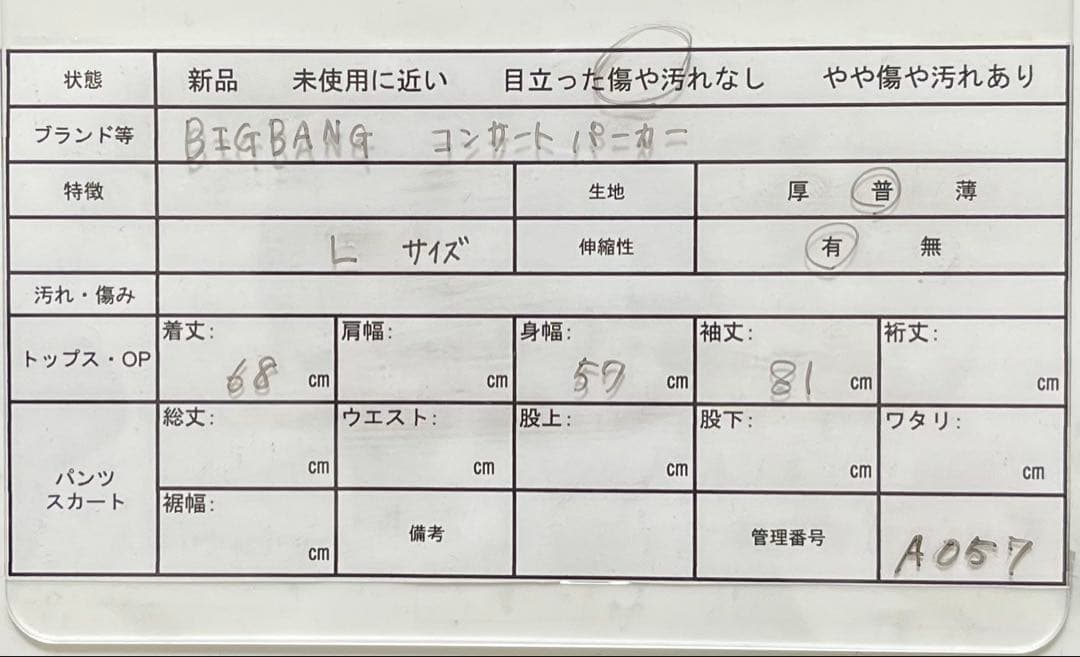 状態 新品 未使用に近い 目立った傷や汚れなし やや傷や汚れあり
ブランド等 BIGBANG コンサートパーカー
特徴 生地 厚 普 薄
L サイズ 伸縮性 有 無
汚れ・傷み
トップス・OP 着丈: 68 cm 肩幅: cm 身幅: 57 cm 袖丈: 81 cm 裄丈: cm
パンツ スカート 総丈: cm ウエスト: cm 股上: cm 股下: cm ワタリ: cm
裾幅: cm 備考 管理番号 A057